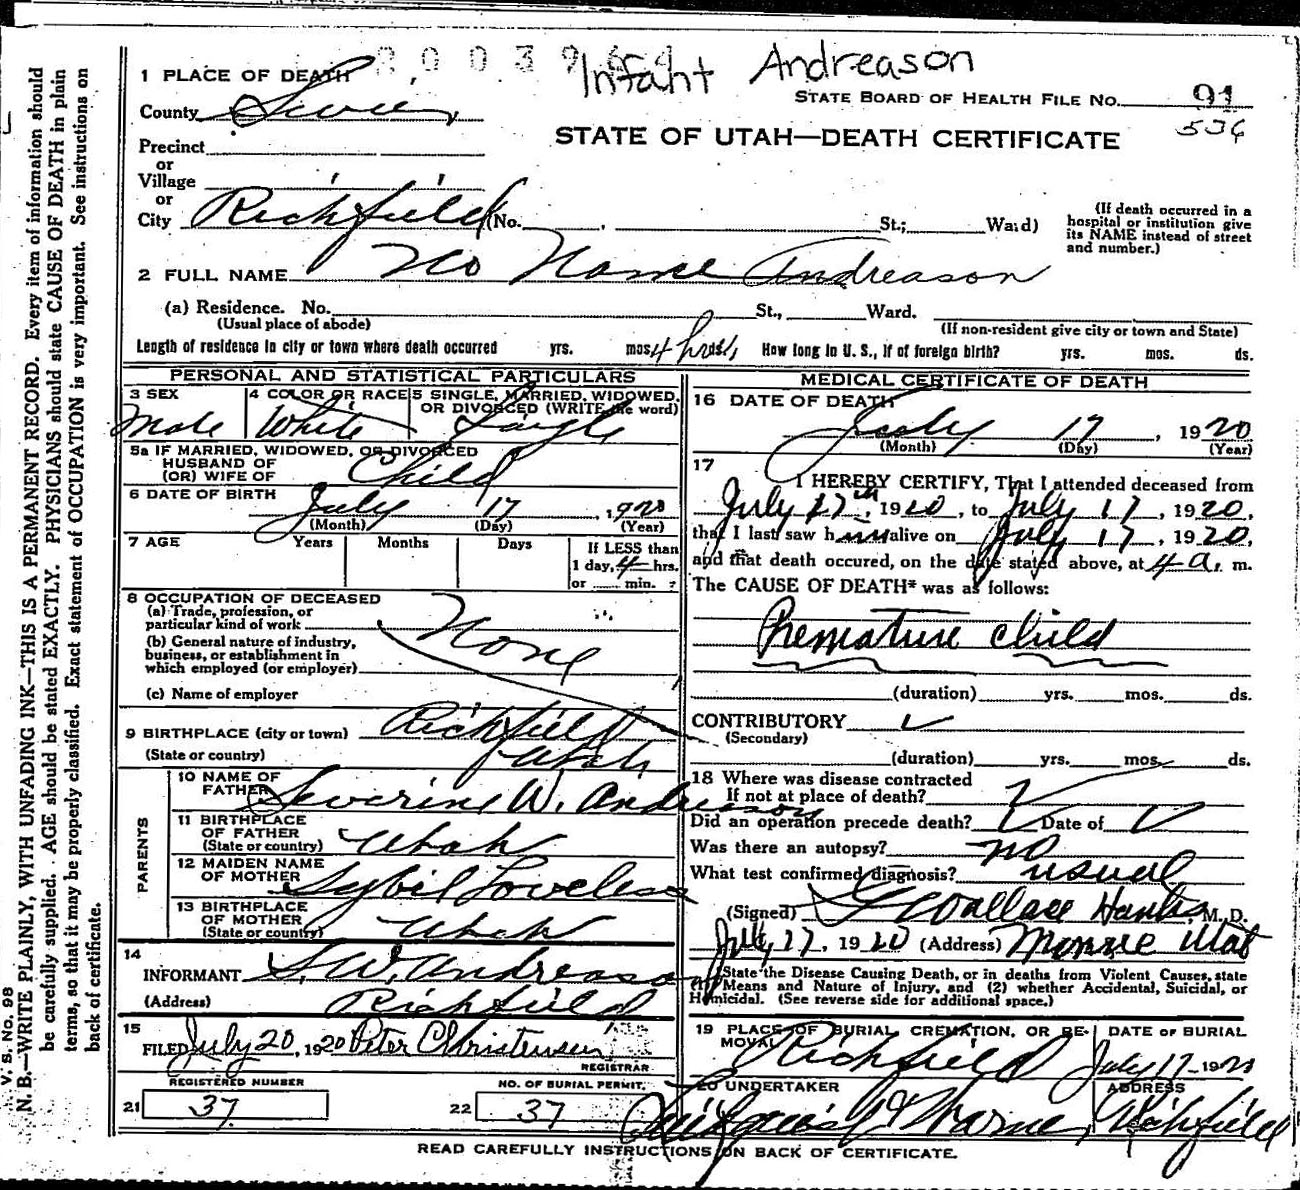 Infant Andreason
1 PLACE OF DEATH
STATE BOARD OF HEALTH FILE NO. 91
536
County Sevier
STATE OF UTAH—DEATH CERTIFICATE
Precinct
or
Village
or
City Richfield (No. St.; Ward)
(If death occurred in a hospital or institution give its NAME instead of street and number.)
2 FULL NAME No Name Andreason
(a) Residence. No. St., Ward.
(Usual place of abode) (If non-resident give city or town and State)
Length of residence in city or town where death occurred yrs. mos. 4 hrs. How long in U. S., if of foreign birth? yrs. mos. ds.
PERSONAL AND STATISTICAL PARTICULARS
3 SEX Male
4 COLOR OR RACE White
5 SINGLE, MARRIED, WIDOWED, OR DIVORCED (WRITE the word) Single
5a IF MARRIED, WIDOWED, OR DIVORCED
HUSBAND OF
(OR) WIFE OF Child
6 DATE OF BIRTH July 17, 1920
(Month) (Day) (Year)
7 AGE Years Months Days If LESS than
1 day, 4 hrs.
or min. ?
8 OCCUPATION OF DECEASED
(a) Trade, profession, or
particular kind of work None
(b) General nature of industry,
business, or establishment in
which employed (or employer)
(c) Name of employer
9 BIRTHPLACE (city or town) Richfield
(State or country) Utah
PARENTS
10 NAME OF FATHER Severine W. Andreason
11 BIRTHPLACE OF FATHER (State or country) Utah
12 MAIDEN NAME OF MOTHER Sybil Loveless
13 BIRTHPLACE OF MOTHER (State or country) Utah
14
INFORMANT S. W. Andreason
(Address) Richfield
15
FILED July 20, 1920 Peter Christensen
REGISTRAR
REGISTERED NUMBER
21 37
NO. OF BURIAL PERMIT.
22 37
MEDICAL CERTIFICATE OF DEATH
16 DATE OF DEATH
July 17, 1920
(Month) (Day) (Year)
17
I HEREBY CERTIFY, That I attended deceased from
July 17th, 1920, to July 17, 1920,
that I last saw him alive on July 17, 1920,
and that death occured, on the date stated above, at 4 a. m.
The CAUSE OF DEATH* was as follows:
Premature child
(duration) yrs. mos. ds.
CONTRIBUTORY
(Secondary)
(duration) yrs. mos. ds.
18 Where was disease contracted
If not at place of death?
Did an operation precede death? Date of
Was there an autopsy? no
What test confirmed diagnosis? usual
(Signed) G Wallace Hanks, M. D.
July 17, 1920 (Address) Monroe Utah
State the Disease Causing Death, or in deaths from Violent Causes, state
Means and Nature of Injury, and (2) whether Accidental, Suicidal, or
Homicidal. (See reverse side for additional space.)
19 PLACE OF BURIAL, CREMATION, OR REMOVAL Richfield
DATE OF BURIAL July 17 1920
20 UNDERTAKER
ADDRESS Richfield
READ CAREFULLY INSTRUCTIONS ON BACK OF CERTIFICATE.
V. S. No. 98
N. B.—WRITE PLAINLY, WITH UNFADING INK—THIS IS A PERMANENT RECORD. Every item of information should
be carefully supplied. AGE should be stated EXACTLY. PHYSICIANS should state CAUSE OF DEATH in plain
terms, so that it may be properly classified. Exact statement of OCCUPATION is very important. See instructions on
back of certificate.